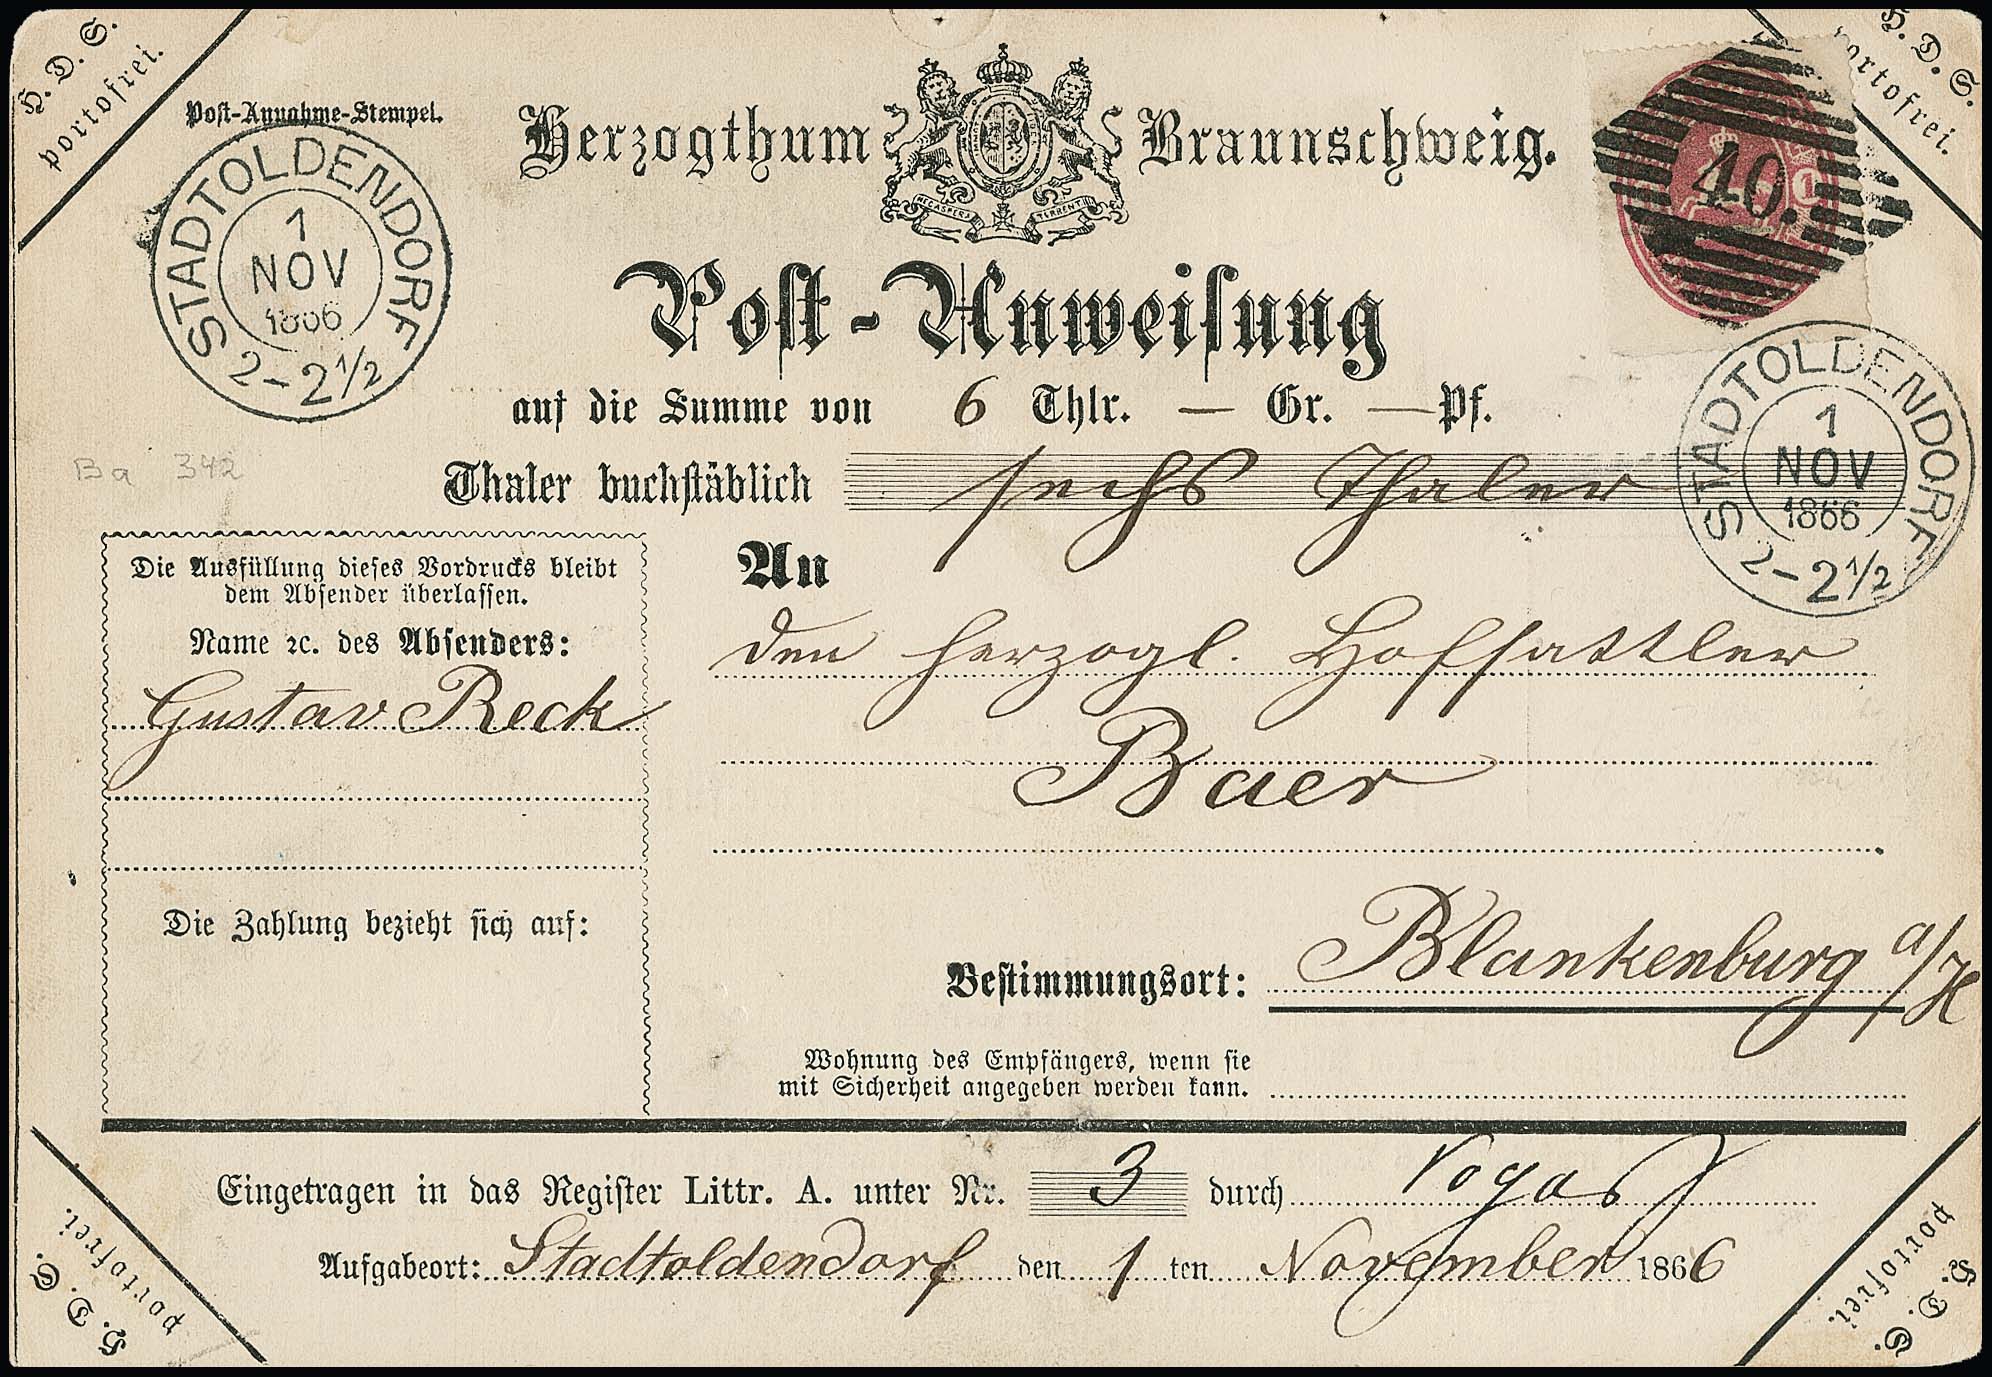 H. D. S.
portofrei.
H. D. S.
portofrei.
Post-Annahme-Stempel.
STADTOLDENDORF
1
NOV
1866
2-2 1/2
Herzogthum Braunschweig.
NEC ASPERA TERRENT
40.
1
Post-Anweisung
auf die Summe von 6 Thlr. — Gr. — Pf.
Thaler buchstäblich sechs Thaler
STADTOLDENDORF
1
NOV
1866
2-2 1/2
Ba 342
Die Ausfüllung dieses Vordrucks bleibt
dem Absender überlassen.
Name ꝛc. des Absenders:
Gustav Reck
Die Zahlung bezieht sich auf:
An
den herzogl. Hofsattler
Baer
Bestimmungsort: Blankenburg a/H
Wohnung des Empfängers, wenn sie
mit Sicherheit angegeben werden kann.
Eingetragen in das Register Littr. A. unter Nr. 3 durch
Aufgabeort: Stadtoldendorf den 1 ten November 1866
H. D. S.
portofrei.
H. D. S.
portofrei.